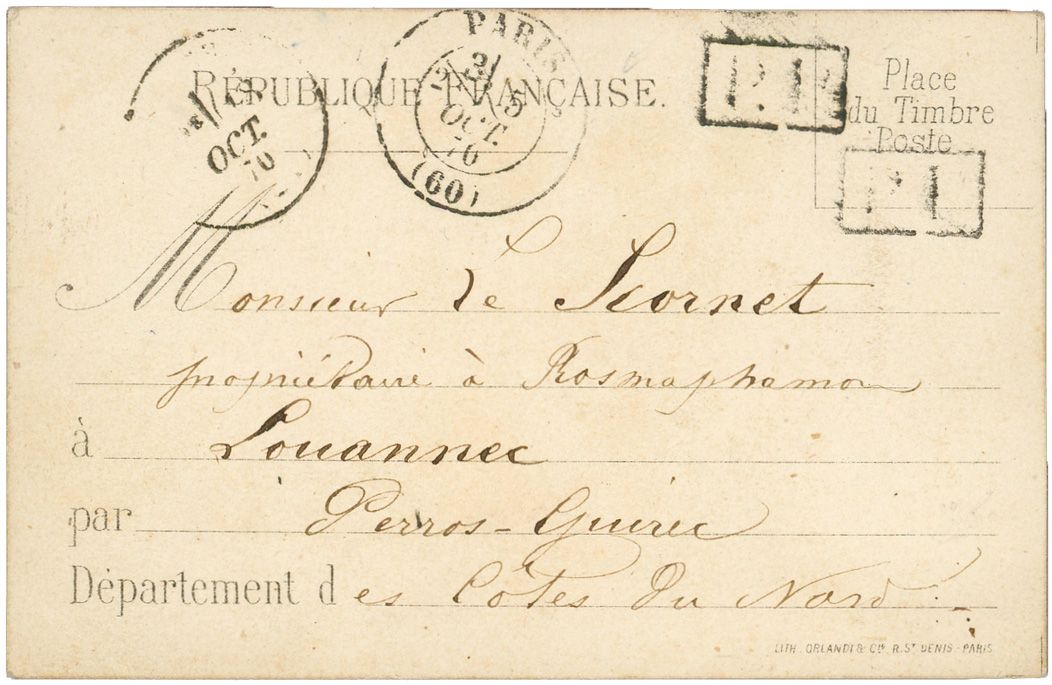 PARIS
5
OCT.
70
(60)
OCT.
70
RÉPUBLIQUE FRANÇAISE.
Place
du Timbre
Poste
P.P.
P.P.
Monsieur Le Scornet
propriétaire à Rosmaphamon
à Louannec
par Perros-Guirec
Département des Côtes du Nord
LITH. ORLANDI & Cie R. St DENIS - PARIS